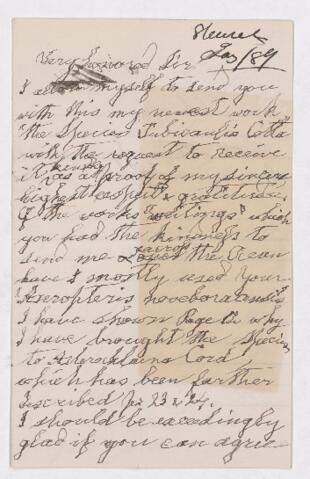 Stenzel
Jas/89
Very Honored Sir
I allow myself to send you
with this my newest work
"the Species Tubicaulis Cotta
with the request to receive
it kindly as a proof of my sincere
highest esteem & gratitude.
Of the works "writings" which
you had the kindness to
send me across the Ocean
have I mostly used your
Asteropteris noveboracensis
I have shown Page why
I have brought the Species
to Asterochlaena Cord
which has been farther
described Ps 23 & 24.
I should be exceedingly
glad if you can agree